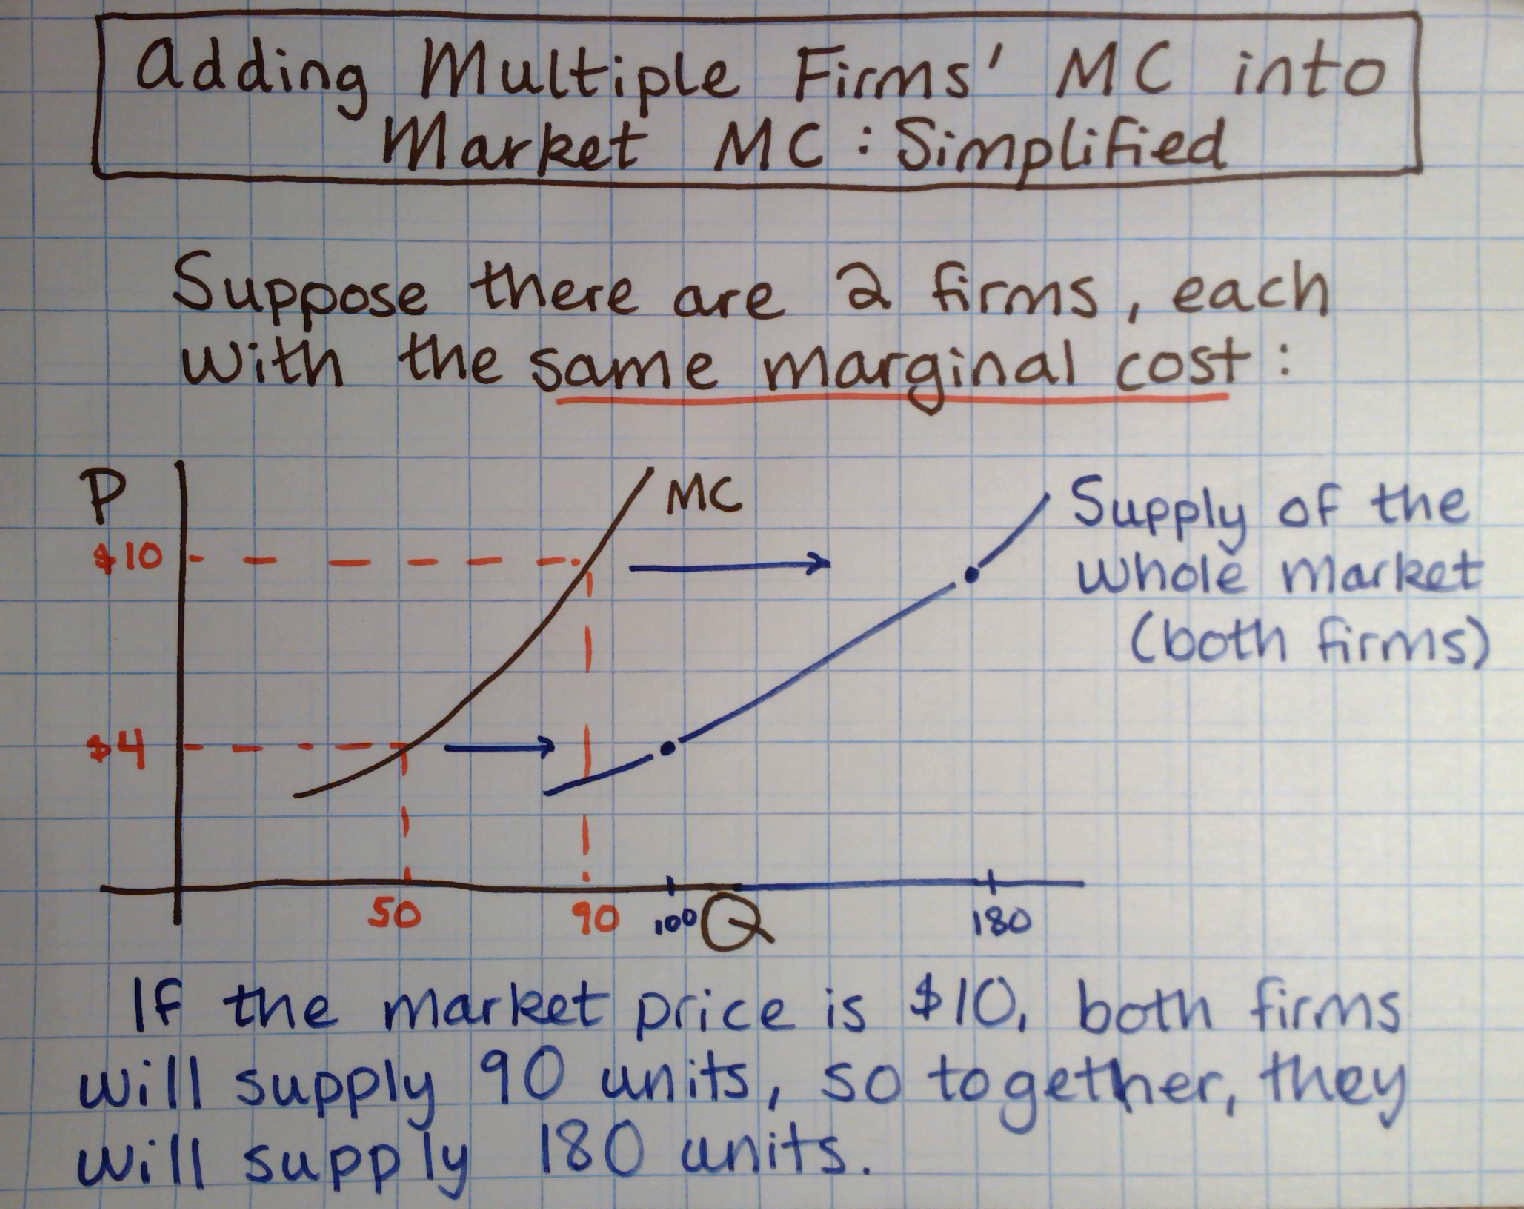 Adding Multiple Firms' MC into
Market MC: Simplified
Suppose there are 2 firms, each
with the same marginal cost:
P
MC
Supply of the
whole market
(both firms)
$10
$4
50
90
100
Q
180
If the market price is $10, both firms
will supply 90 units, so together, they
will supply 180 units.